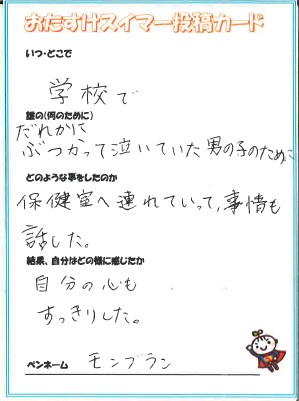 おたすけスイマー投稿カード
いつ・どこで
学校で
誰の(何のために)
だれかに
ぶつかって泣いていた男の子のために
どのような事をしたのか
保健室へ連れていって,事情も
話した。
結果、自分はどの様に感じたか
自分の心も
すっきりした。
ペンネーム モンブラン